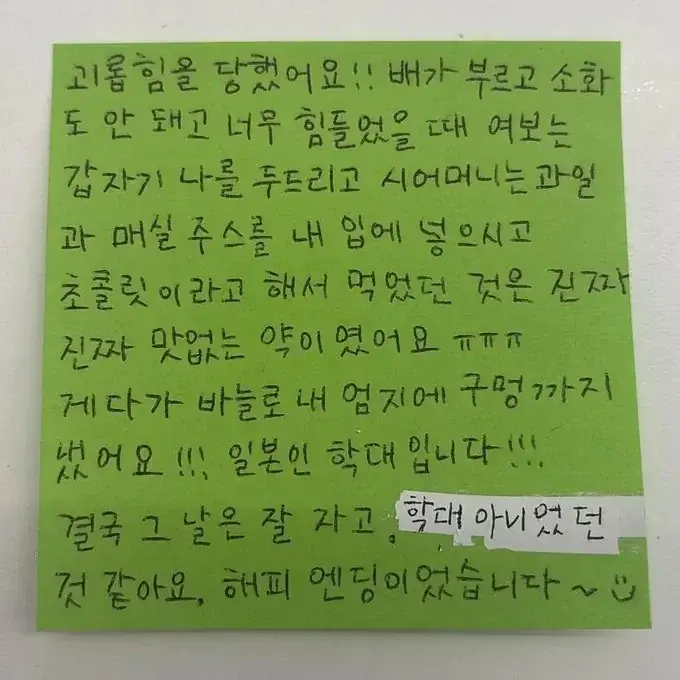 괴롭힘을 당했어요!! 배가 부르고 소화
도 안 돼고 너무 힘들었을 때 여보는
갑자기 나를 두드리고 시어머니는 과일
과 매실 주스를 내 입에 넣으시고
초콜릿이라고 해서 먹었던 것은 진짜
진짜 맛없는 약이였어요 ㅠㅠㅠ
게다가 바늘로 내 엄지에 구멍까지
넜어요!!! 일본인 학대입니다!!!
결국 그 날은 잘 자고, 학대 아니었던
것 같아요, 해피 엔딩이었습니다~☺